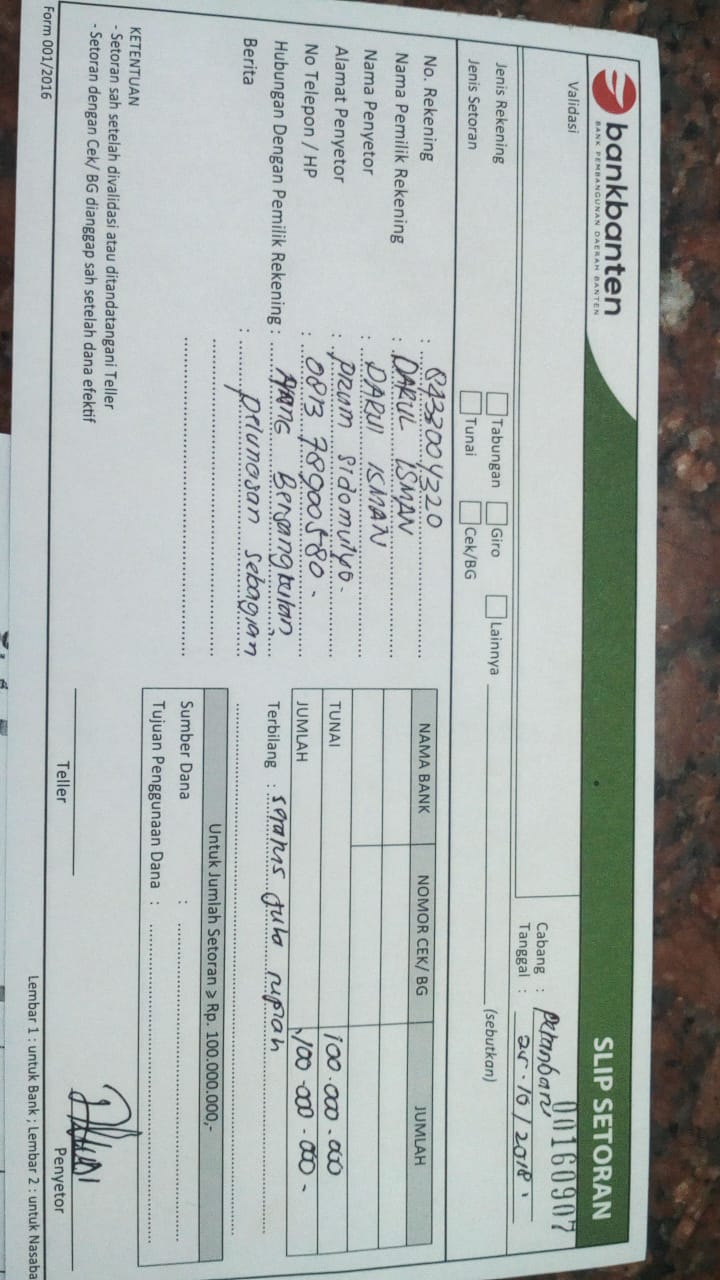 bankbanten
BANK PEMBANGUNAN DAERAH BANTEN
SLIP SETORAN
00160907
Validasi
Cabang : Pekanbaru
Tanggal : 25-10/2018.
Jenis Rekening Tabungan Giro Lainnya (sebutkan)
Jenis Setoran Tunai Cek/BG
No. Rekening : 8433004320
Nama Pemilik Rekening : DARUL ISMAN
Nama Penyetor : DARUL ISMAN
Alamat Penyetor : prum sidomulyo.
No Telepon / HP : 0813 78900580.
Hubungan Dengan Pemilik Rekening : yang Bersangkutan
Berita : pelunasan sebagian
NAMA BANK NOMOR CEK/ BG JUMLAH
TUNAI 100.000.000
JUMLAH 100.000.000.
Terbilang : seratus juta rupiah
Untuk Jumlah Setoran ≥ Rp. 100.000.000,-
Sumber Dana :
Tujuan Penggunaan Dana :
KETENTUAN
- Setoran sah setelah divalidasi atau ditandatangani Teller
- Setoran dengan Cek/ BG dianggap sah setelah dana efektif
Teller
Penyetor
Form 001/2016
Lembar 1 : untuk Bank ; Lembar 2 : untuk Nasaba